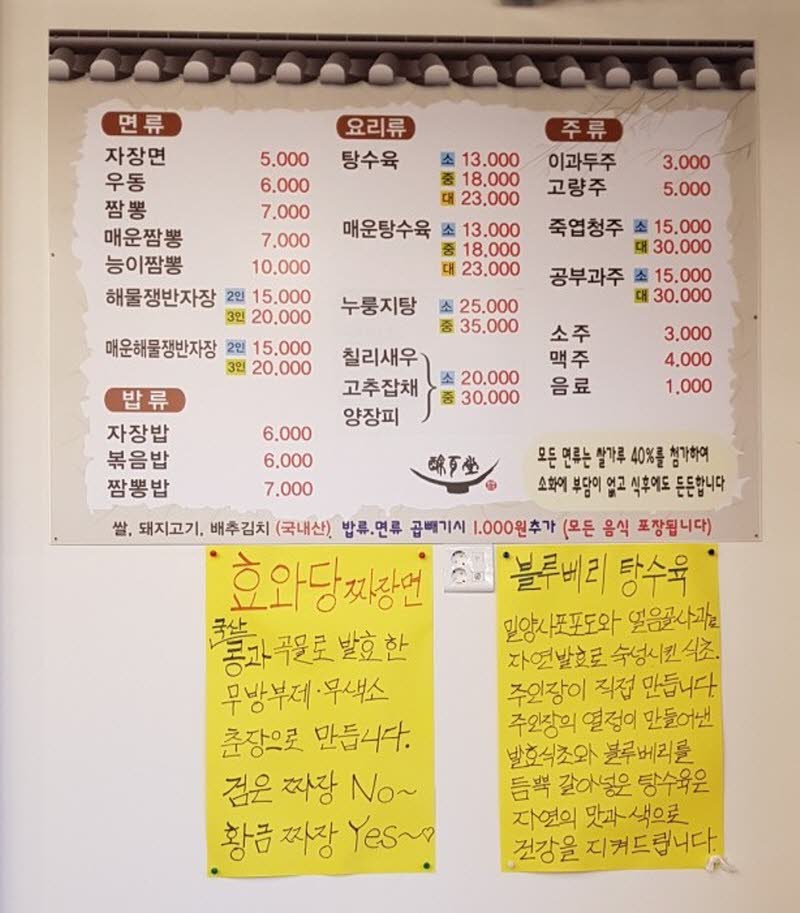 면류
자장면 5.000
우동 6.000
짬뽕 7.000
매운짬뽕 7.000
능이짬뽕 10.000
해물쟁반자장 2인 15.000
3인 20.000
매운해물쟁반자장 2인 15.000
3인 20.000
밥류
자장밥 6.000
볶음밥 6.000
짬뽕밥 7.000
요리류
탕수육 소 13.000
중 18.000
대 23.000
매운탕수육 소 13.000
중 18.000
대 23.000
누룽지탕 소 25.000
중 35.000
칠리새우
고추잡채
양장피
소 20.000
중 30.000
주류
이과두주 3.000
고량주 5.000
죽엽청주 소 15.000
대 30.000
공부과주 소 15.000
대 30.000
소주 3.000
맥주 4.000
음료 1.000
모든 면류는 쌀가루 40%를 첨가하여
소화에 부담이 없고 식후에도 든든합니다
쌀, 돼지고기, 배추김치 (국내산) 밥류.면류 곱빼기시 1.000원추가 (모든 음식 포장됩니다)
효와당 짜장면
국산
콩과 곡물로 발효한
무방부제·무색소
춘장으로 만듭니다.
검은 짜장 No~
황금 짜장 Yes~♡
블루베리 탕수육
밀양사포포도와 얼음골사과로
자연발효로 숙성시킨 식초.
주인장이 직접 만듭니다.
주인장의 열정이 만들어낸
발효식초와 블루베리를
듬뿍 갈아넣은 탕수육은
자연의 맛과 색으로
건강을 지켜드립니다.